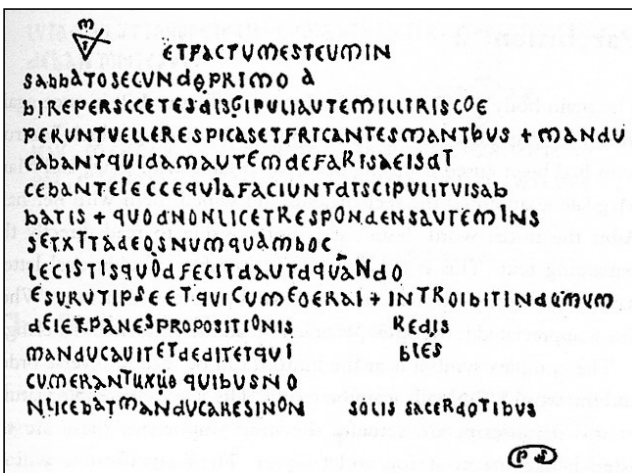 ETFACTUMESTEUMIN
SABBATOSECUNDOPRIMO A
BIREPERSCCETESDISGIPULIAUTEMILLITRISCOE
PERUNTVELLERESPICASETFRICANTESMANTBUS + MANDU
CABANTQUIDAMAUTEMDEFARISAEISDT
CEBANTEIECCEQUIAFACIUNTDTSCIPULITVISAB
BATIS + QUODNONLICETRESPONDENSAUTEMINS
SETXTTADEOSNUMQUAMBOC
LECISTISQUODFECITDAUTDQUANDO
ESURUTIPSEETQUICUMEOERAI + INTROIBITINDUMUM
DEIETPANESPROPOSITIONIS REDIS
MANDUCAUITETDEDITETQUI BLES
CUMERANTUXUO QUIBUSNO
NLICEBATMANDUCARESINON SOLIS SACERDOTIBUS
PS